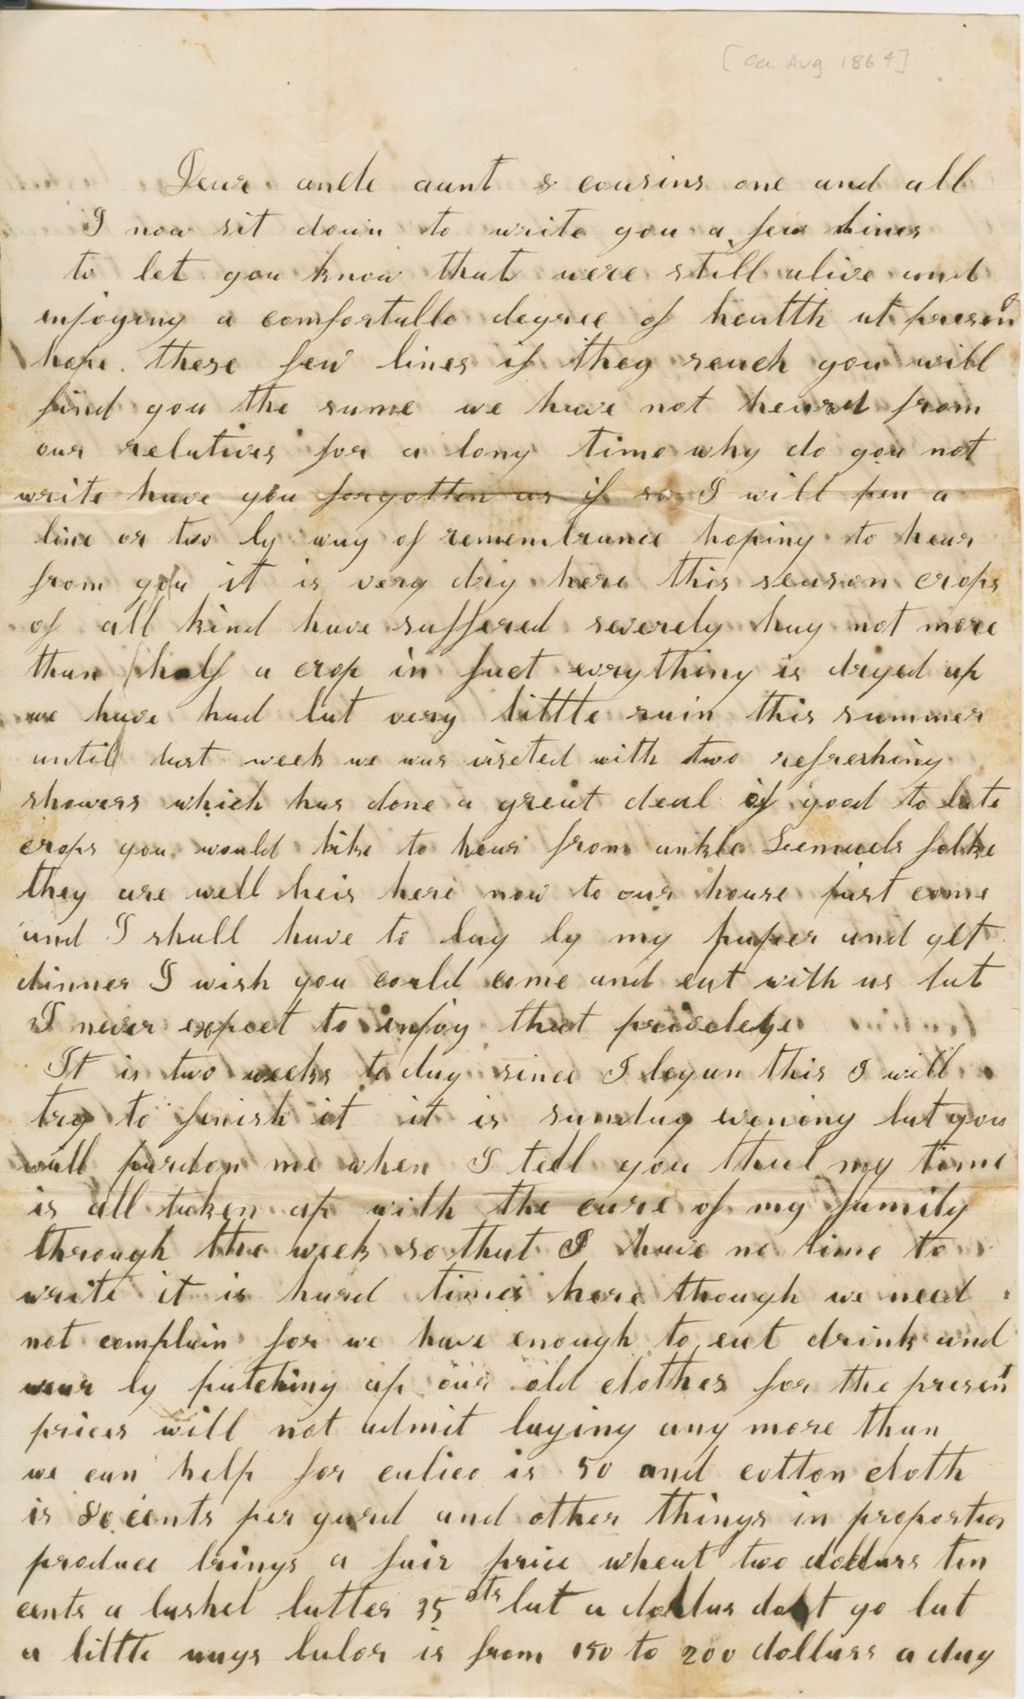 [ca Aug 1864]
Dear uncle aunt & cousins one and all
I now sit down to write you a few lines
to let you know that were still alive and
injoying a comfortable degree of health at present
hope these few lines if they reach you will
find you the same we have not heard from
our relatives for a long time why do you not
write have you forgotten us if so I will pen a
line or two by way of remembrance hoping to hear
from you it is very dry here this season crops
of all kind have suffered severely hay not more
than half a crop in fact evrything is dryed up
we have had but very little rain this summer
until last week we was viseted with two refreshing
showers which has done a great deal of good to late
crops you would like to hear from unkle Lemuels folks
they are well heis here now to our house just come
and I shall have to lay by my paper and get
dinner I wish you could come and eat with us but
I never expect to injoy that privelege
It is two weeks to day since I began this I will
try to finish it it is sunday evening but you
will pardon me when I tell you that my time
is all taken up with the care of my family
through the week so that I have no time to
write it is hard times here though we need
not complain for we have enough to eat drink and
wear by patching up our old clothes for the present
prices will not admit buying any more than
we can help for calico is 50 and cotton cloth
is 80 cents per yard and other things in proportion
produce brings a fair price wheat two dollars ten
cents a bushel butter 35 cts but a dollar dont go but
a little ways labor is from 150 to 200 dollars a day